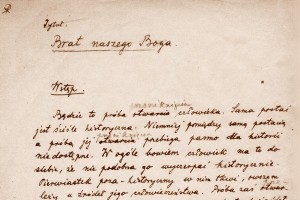 Tytuł:
Brat naszego Boga.
Wstęp.
Będzie to próba otwarcia człowieka. Sama postać
jest ściśle historyczna. Niemniej pomiędzy samą postacią
a próbą jej przebiega pasmo dla historii
niedostępne. W ogóle bowiem człowiek ma to do
siebie, że nie podobna go wyczerpać historycznie.
Pierwiastek poza-historyczny w nim tkwi, owszem
leży u źródeł jego człowieczeństwa. Próba zaś